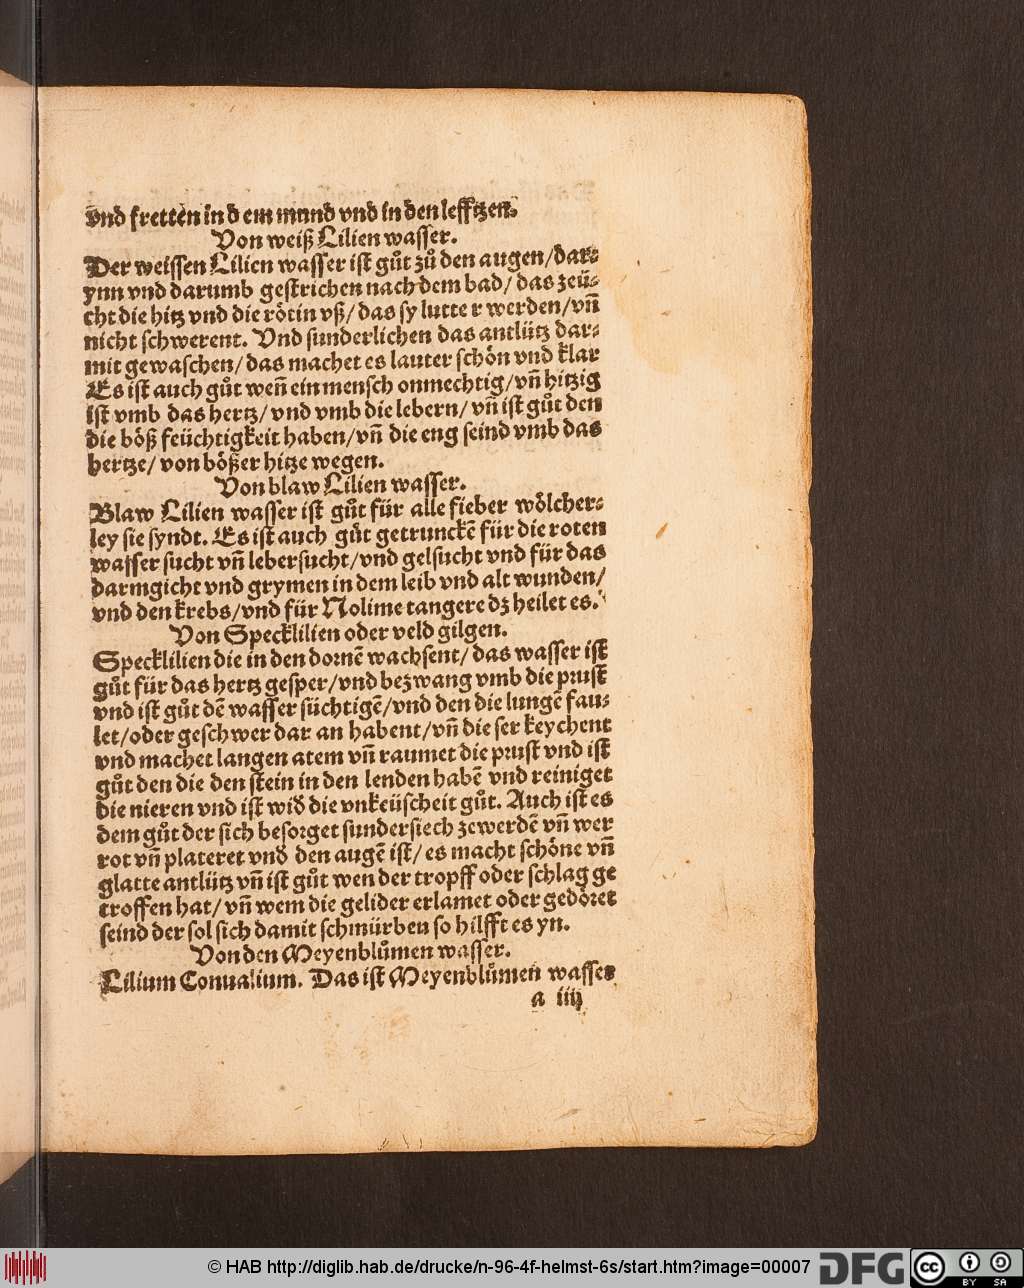 vnd fretten in d em mund vnd in den lefftzen.
Von weiß Lilien wasser.
Der weissen Lilien wasser ist gůt zů den augen/dar⸗
ynn vnd darumb gestrichen nach dem bad/ das zeü⸗
cht die hitz vnd die rötin vß/das sy lutte r werden/vñ
nicht schwerent. Vnd sunderlichen das antlütz dar⸗
mit gewaschen/das machet es lauter schön vnd klar
Es ist auch gůt weñ ein mensch onmechtig/vñ hitzig
ist vmb das hertz/vnd vmb die lebern/vñ ist gůt den
die böß feüchtigkeit haben/vñ die eng seind vmb das
hertze/von bößer hitze wegen.
Von blaw Lilien wasser.
Blaw Lilien wasser ist gůt für alle fieber wölcher⸗
ley sie syndt. Es ist auch gůt getrunckē für die roten
wasser sucht vñ lebersucht/vnd gelsucht vnd für das
darmgicht vnd grymen in dem leib vnd alt wunden/
vnd den krebs/vnd für Nolime tangere dz heilet es.
Von Specklilien oder veld gilgen.
Specklilien die in den dornē wachsent/das wasser ist
gůt für das hertz gesper/vnd bezwang vmb die prust
vnd ist gůt dē wasser süchtigē/vnd den die lungē fau⸗
let/oder geschwer dar an habent/vñ die ser keychent
vnd machet langen atem vñ raumet die prust vnd ist
gůt den die den stein in den lenden habē vnd reiniget
die nieren vnd ist wid̄ die vnkeüscheit gůt. Auch ist es
dem gůt der sich besorget sundersiech zewerdē vñ wer
rot vñ plateret vnd̄ den augē ist/es macht schöne vñ
glatte antlütz vñ ist gůt wen der tropff oder schlag ge
troffen hat/vñ wem die gelider erlamet oder gedöret
seind der sol sich damit schmürben so hilfft es yn.
Von den Meyenblůmen wasser.
Lilium Conualium. Das ist Meyenblůmen wasser
a iiij
© HAB http://diglib.hab.de/drucke/n-96-4f-helmst-6s/start.htm?image=00007 DFG cc BY SA